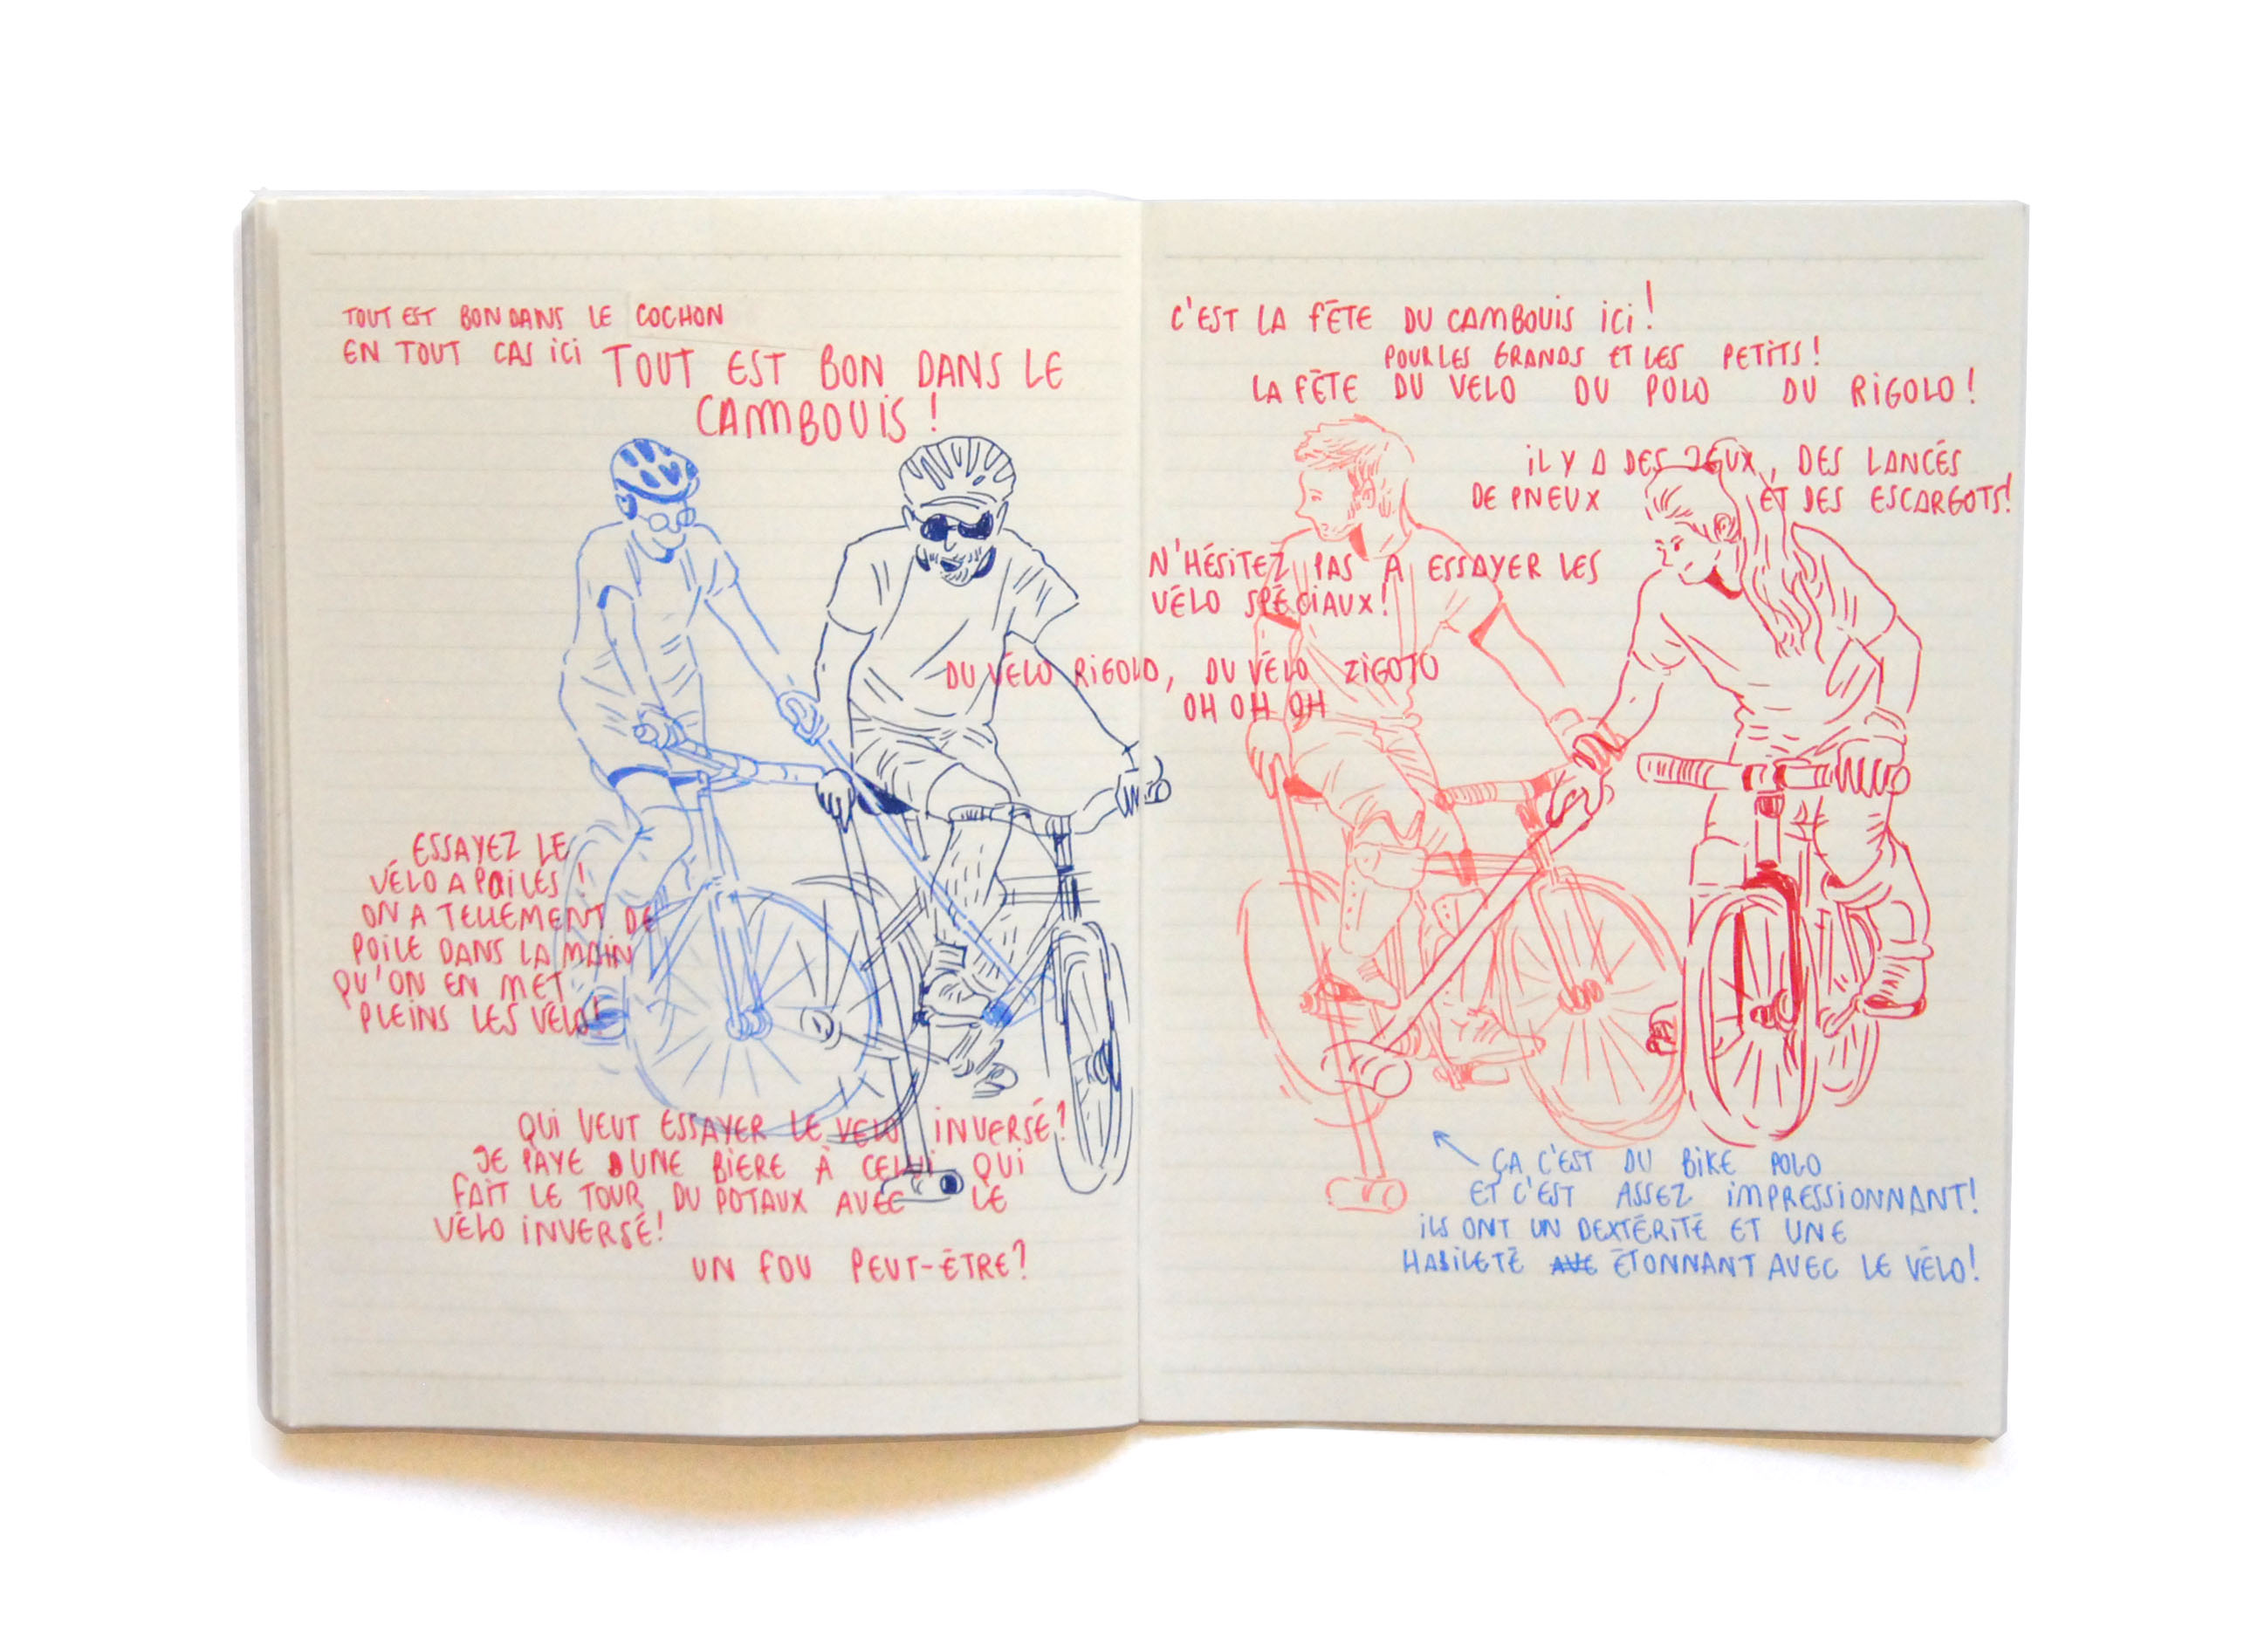 TOUT EST BON DANS LE COCHON
EN TOUT CAS ICI TOUT EST BON DANS LE
CAMBOUIS !
ESSAYEZ LE
VÉLO A POILES !
ON A TELLEMENT DE
POILE DANS LA MAIN
QU'ON EN MET
PLEINS LES VÉLO!
QUI VEUT ESSAYER LE VELO INVERSÉ?
JE PAYE UNE BIERE À CELUI QUI
FAIT LE TOUR DU POTAUX AVEC LE
VÉLO INVERSÉ!
UN FOU PEUT-ÊTRE?
C'EST LA FÊTE DU CAMBOUIS ICI!
POUR LES GRANDS ET LES PETITS!
LA FÊTE DU VELO DU POLO DU RIGOLO!
IL Y A DES JEUX, DES LANCÉS
DE PNEUX ET DES ESCARGOTS!
N'HÉSITEZ PAS A ESSAYER LES
VÉLO SPÉCIAUX!
DU VÉLO RIGOLO, DU VÉLO ZIGOTO
OH OH OH
ÇA C'EST DU BIKE POLO
ET C'EST ASSEZ IMPRESSIONNANT!
ILS ONT UN DEXTÉRITÉ ET UNE
HABILETÉ AVE ÉTONNANT AVEC LE VÉLO!